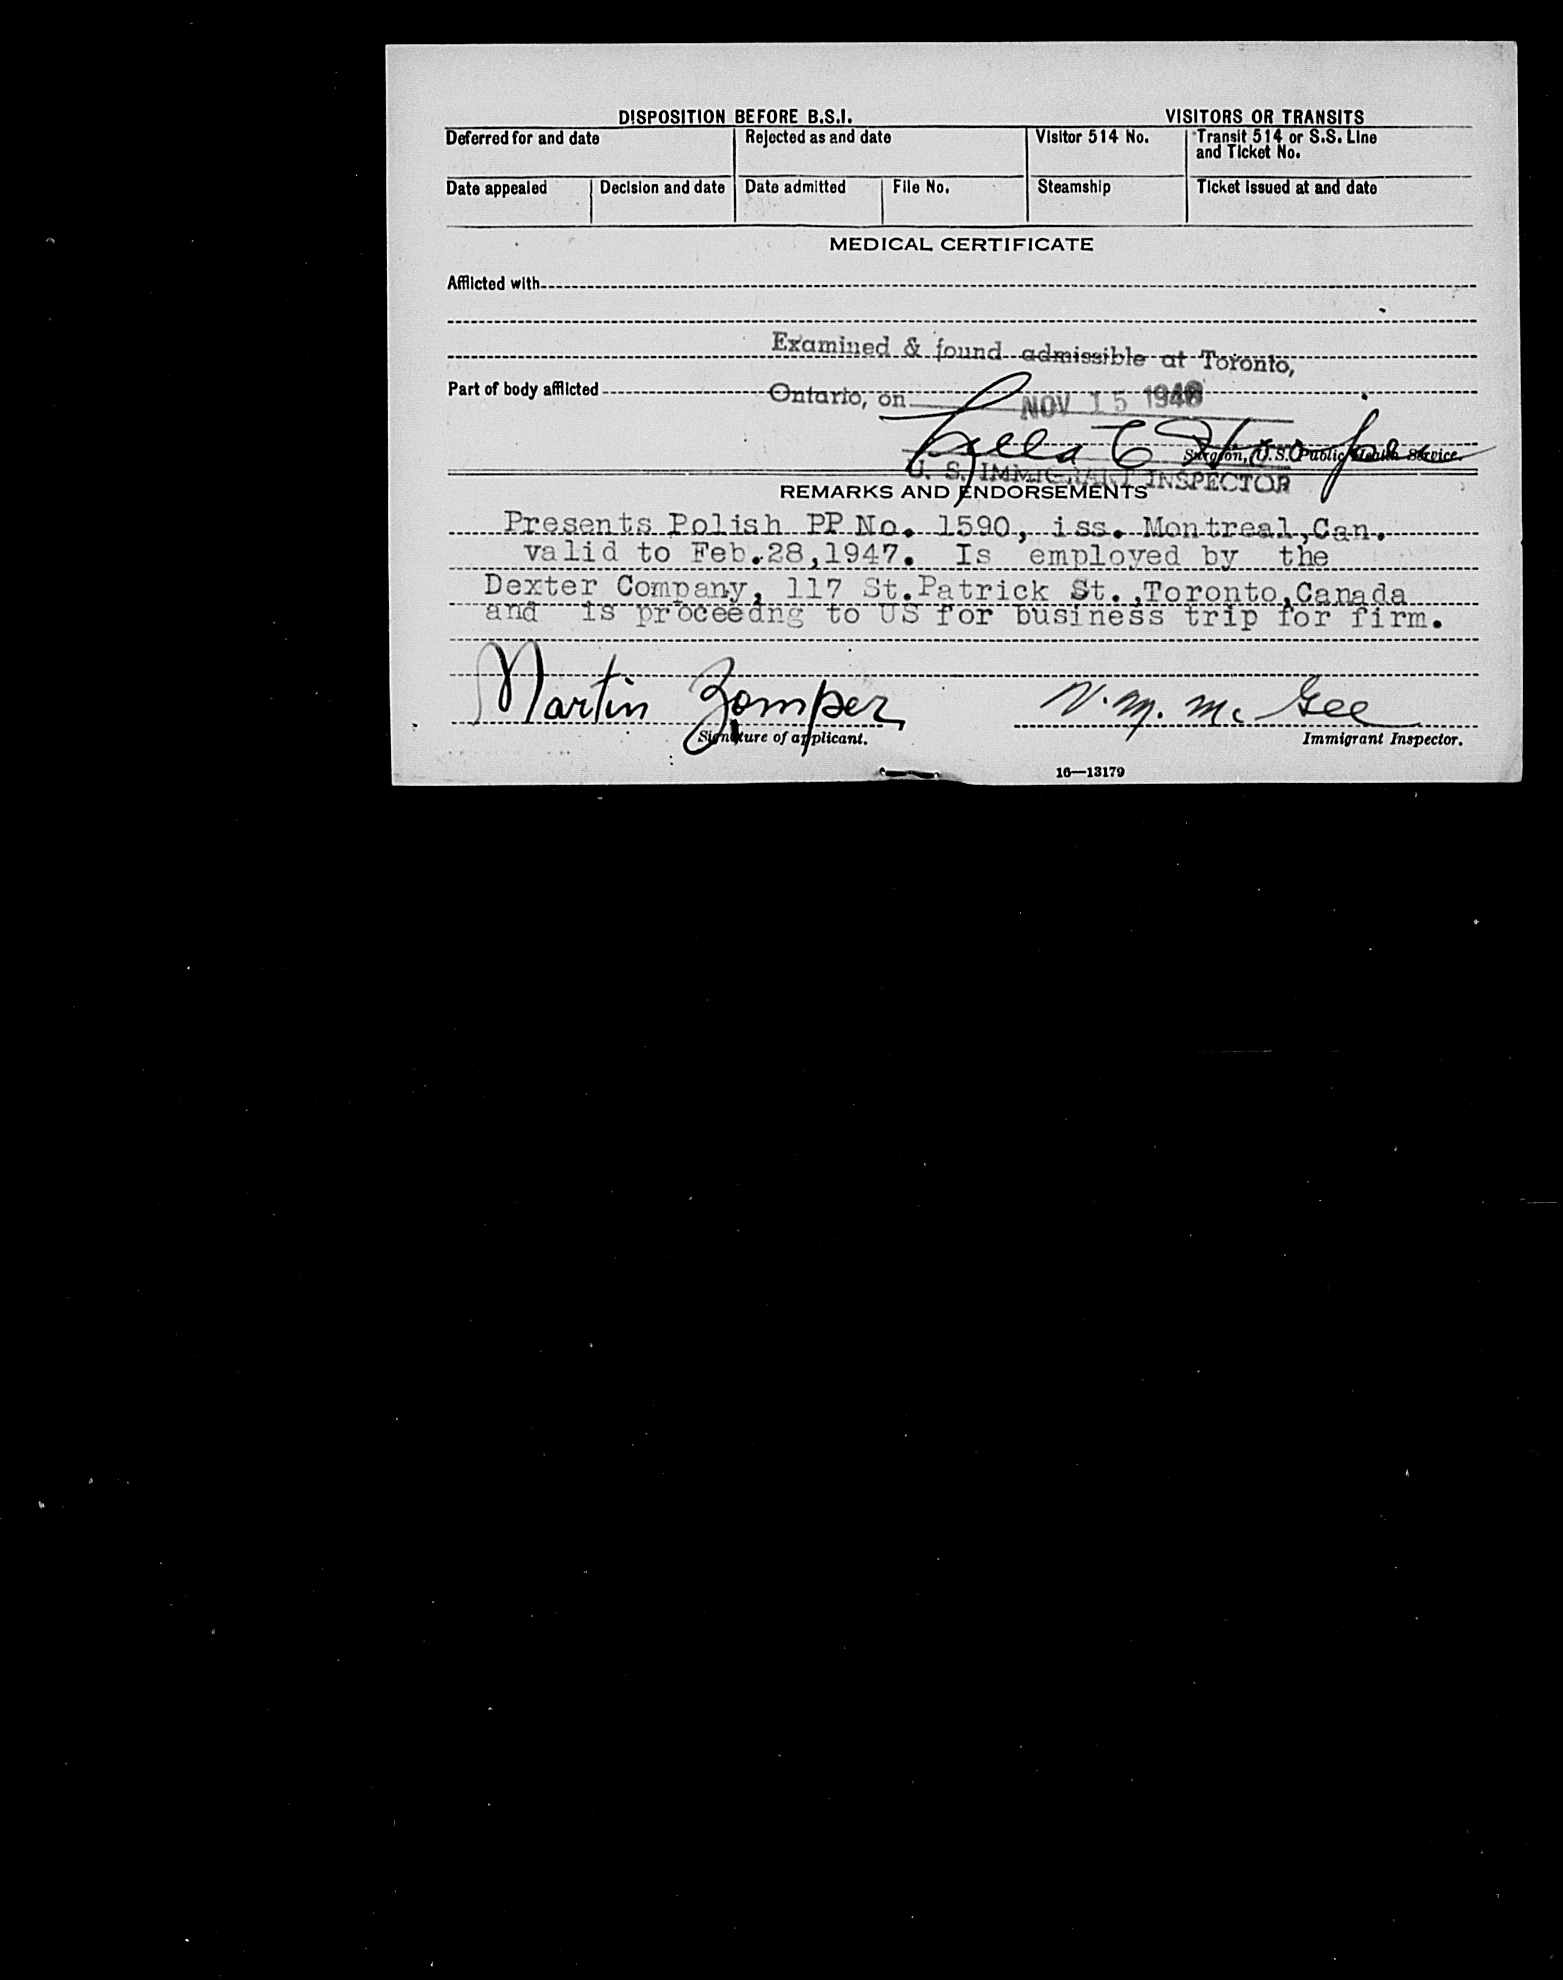 DISPOSITION BEFORE B.S.I. VISITORS OR TRANSITS
Deferred for and date Rejected as and date Visitor 514 No. Transit 514 or S.S. Line
and Ticket No.
Date appealed Decision and date Date admitted File No. Steamship Ticket issued at and date
MEDICAL CERTIFICATE
Afflicted with
Examined & found admissible at Toronto,
Part of body afflicted Ontario, on NOV 15 1946
Surgeon, U.S. Public Health Service.
U. S. IMMIGRANT INSPECTOR
REMARKS AND ENDORSEMENTS
Presents Polish PP No. 1590, iss. Montreal,Can.
valid to Feb.28,1947. Is employed by the
Dexter Company, 117 St.Patrick St.,Toronto,Canada
and is proceedng to US for business trip for firm.
Martin Zomper V. M. McGee
Signature of applicant. Immigrant Inspector.
16—13179